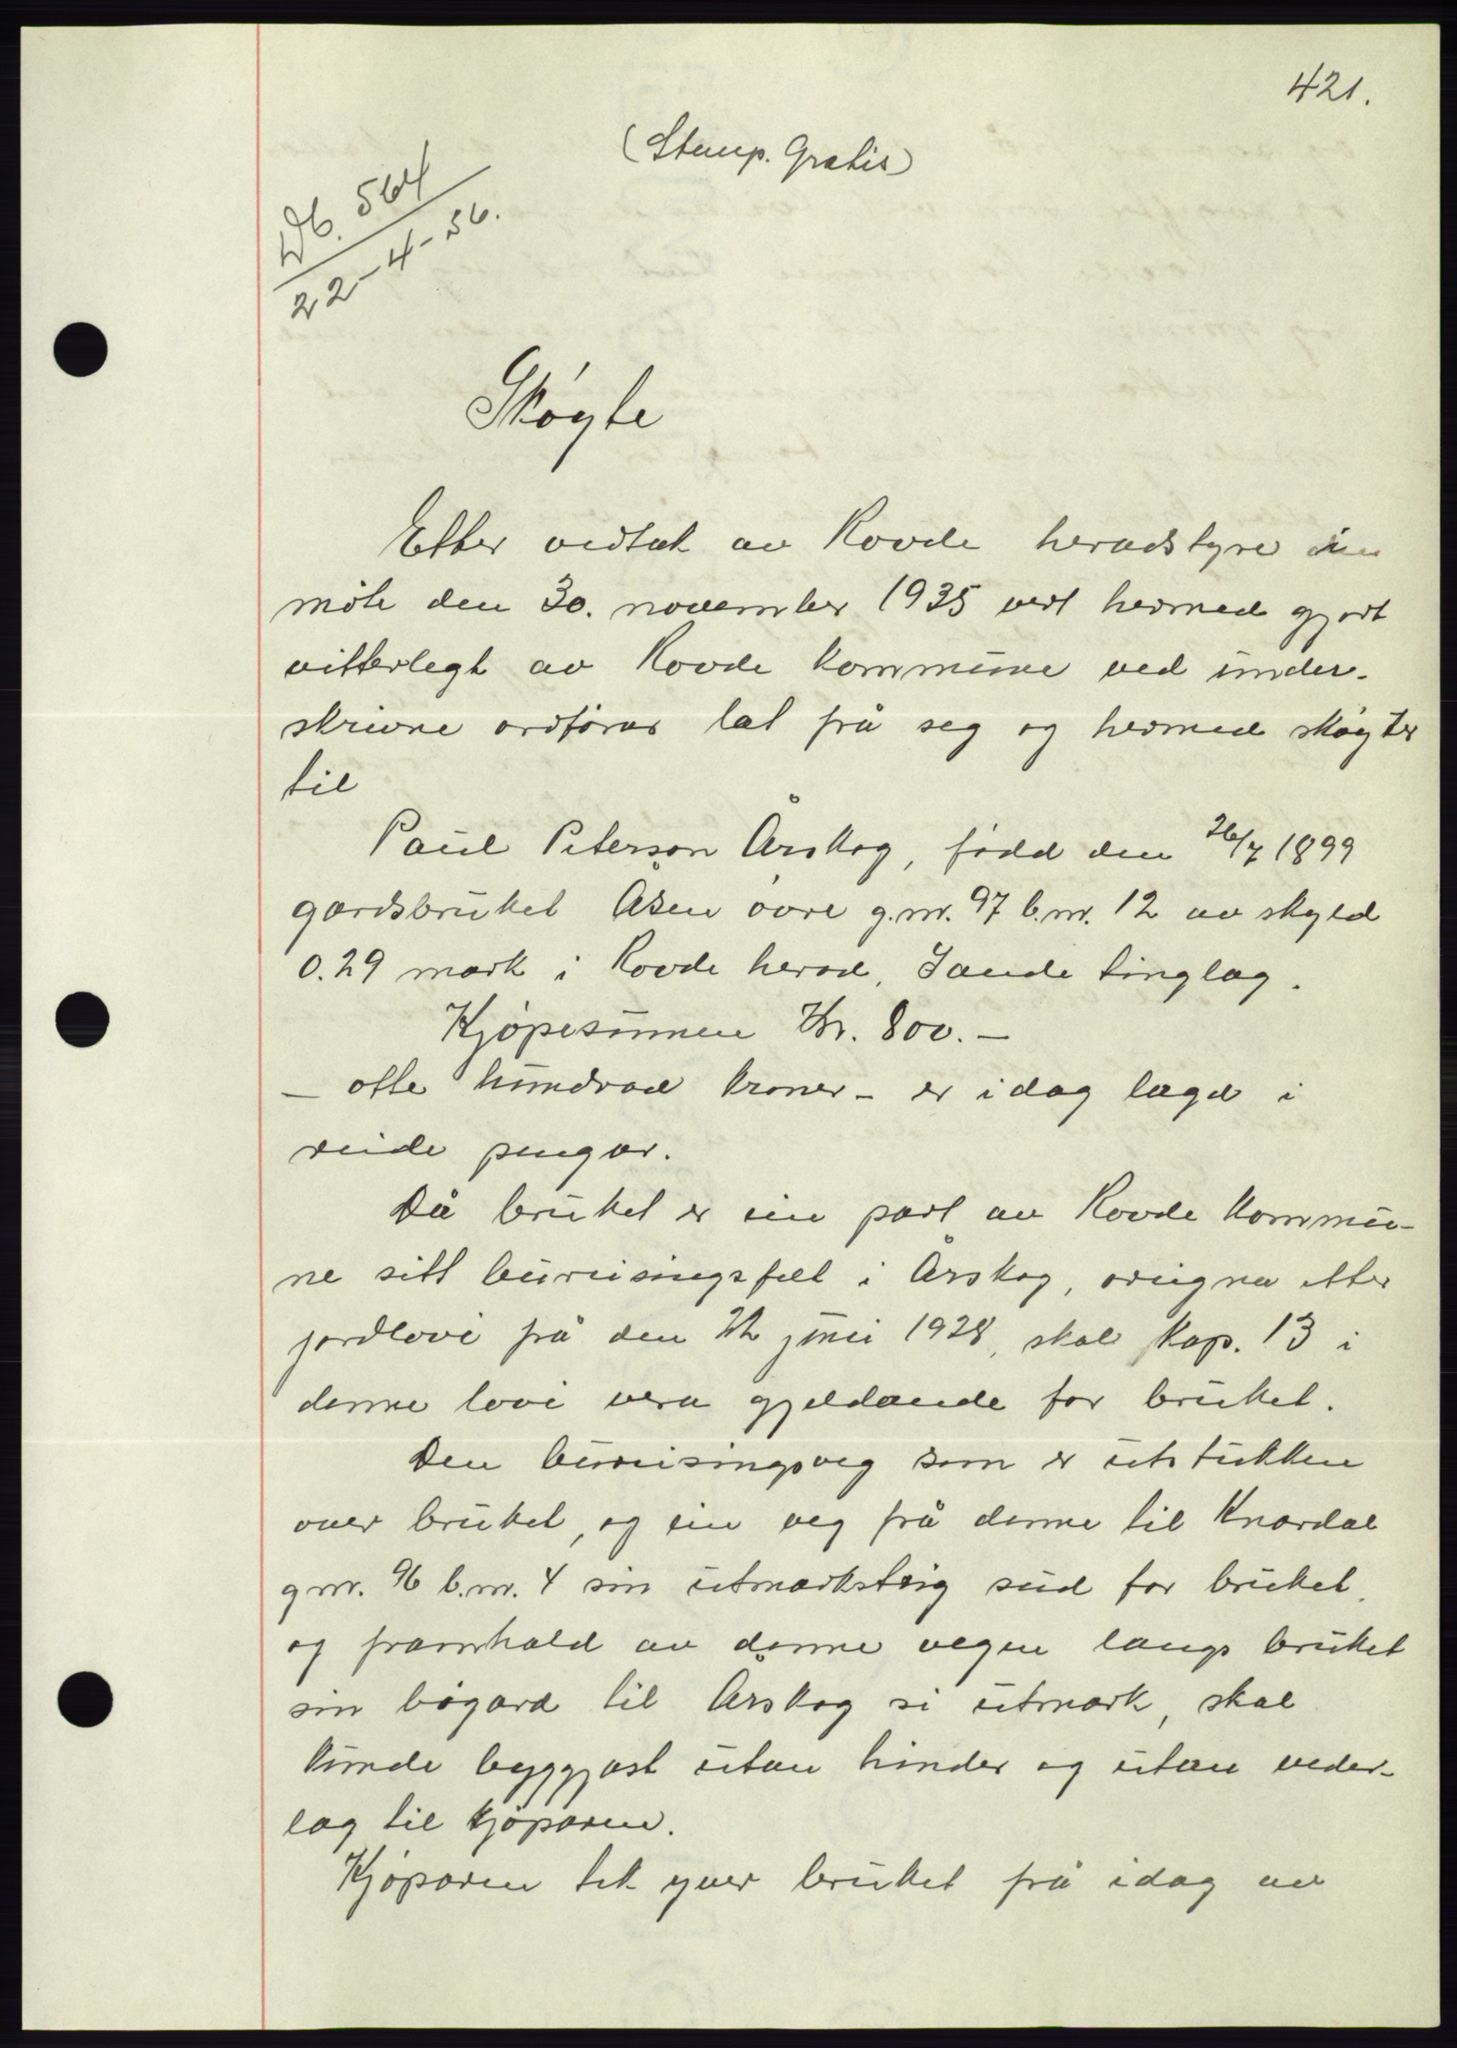 421.
(Stemp. Gratis)
Db. 564
22-4-36.
Skøyte
Etter vedtak av Rovde heradstyre i
møte den 30. november 1935 vert hermed gjort
vitterlegt av Rovde kommune ved under-
skrivne ordførar lat frå seg og hermed skøyter
til
Paul Peterson Årskog, fødd den 26/7 1899
gardsbruket Åsen øvre g.nr. 97 b.nr. 12 av skyld
0.29 mark i Rovde herad, Sande tinglag.
Kjøpesummen Kr. 800.—
— otte hundrad kroner — er idag lagd i
reide pengar.
Då bruket er ein part av Rovde kommu-
ne sitt bureisingsfelt i Årskog, oreigna etter
jordlovi frå den 22 juni 1928, skal kap. 13 i
denne lovi vera gjeldande for bruket.
Den bureisingsveg som er utstukken
over bruket, og ein veg frå denne til Knardal
gnr. 96 b.nr. 4 sin utmarksteig sud for bruket,
og framhald av denne vegen langs bruket
sin bøgard til Årskog si utmark, skal
kunde byggjast utan hinder og utan veder-
lag til kjøparen.
Kjøparen tek yver bruket frå idag av